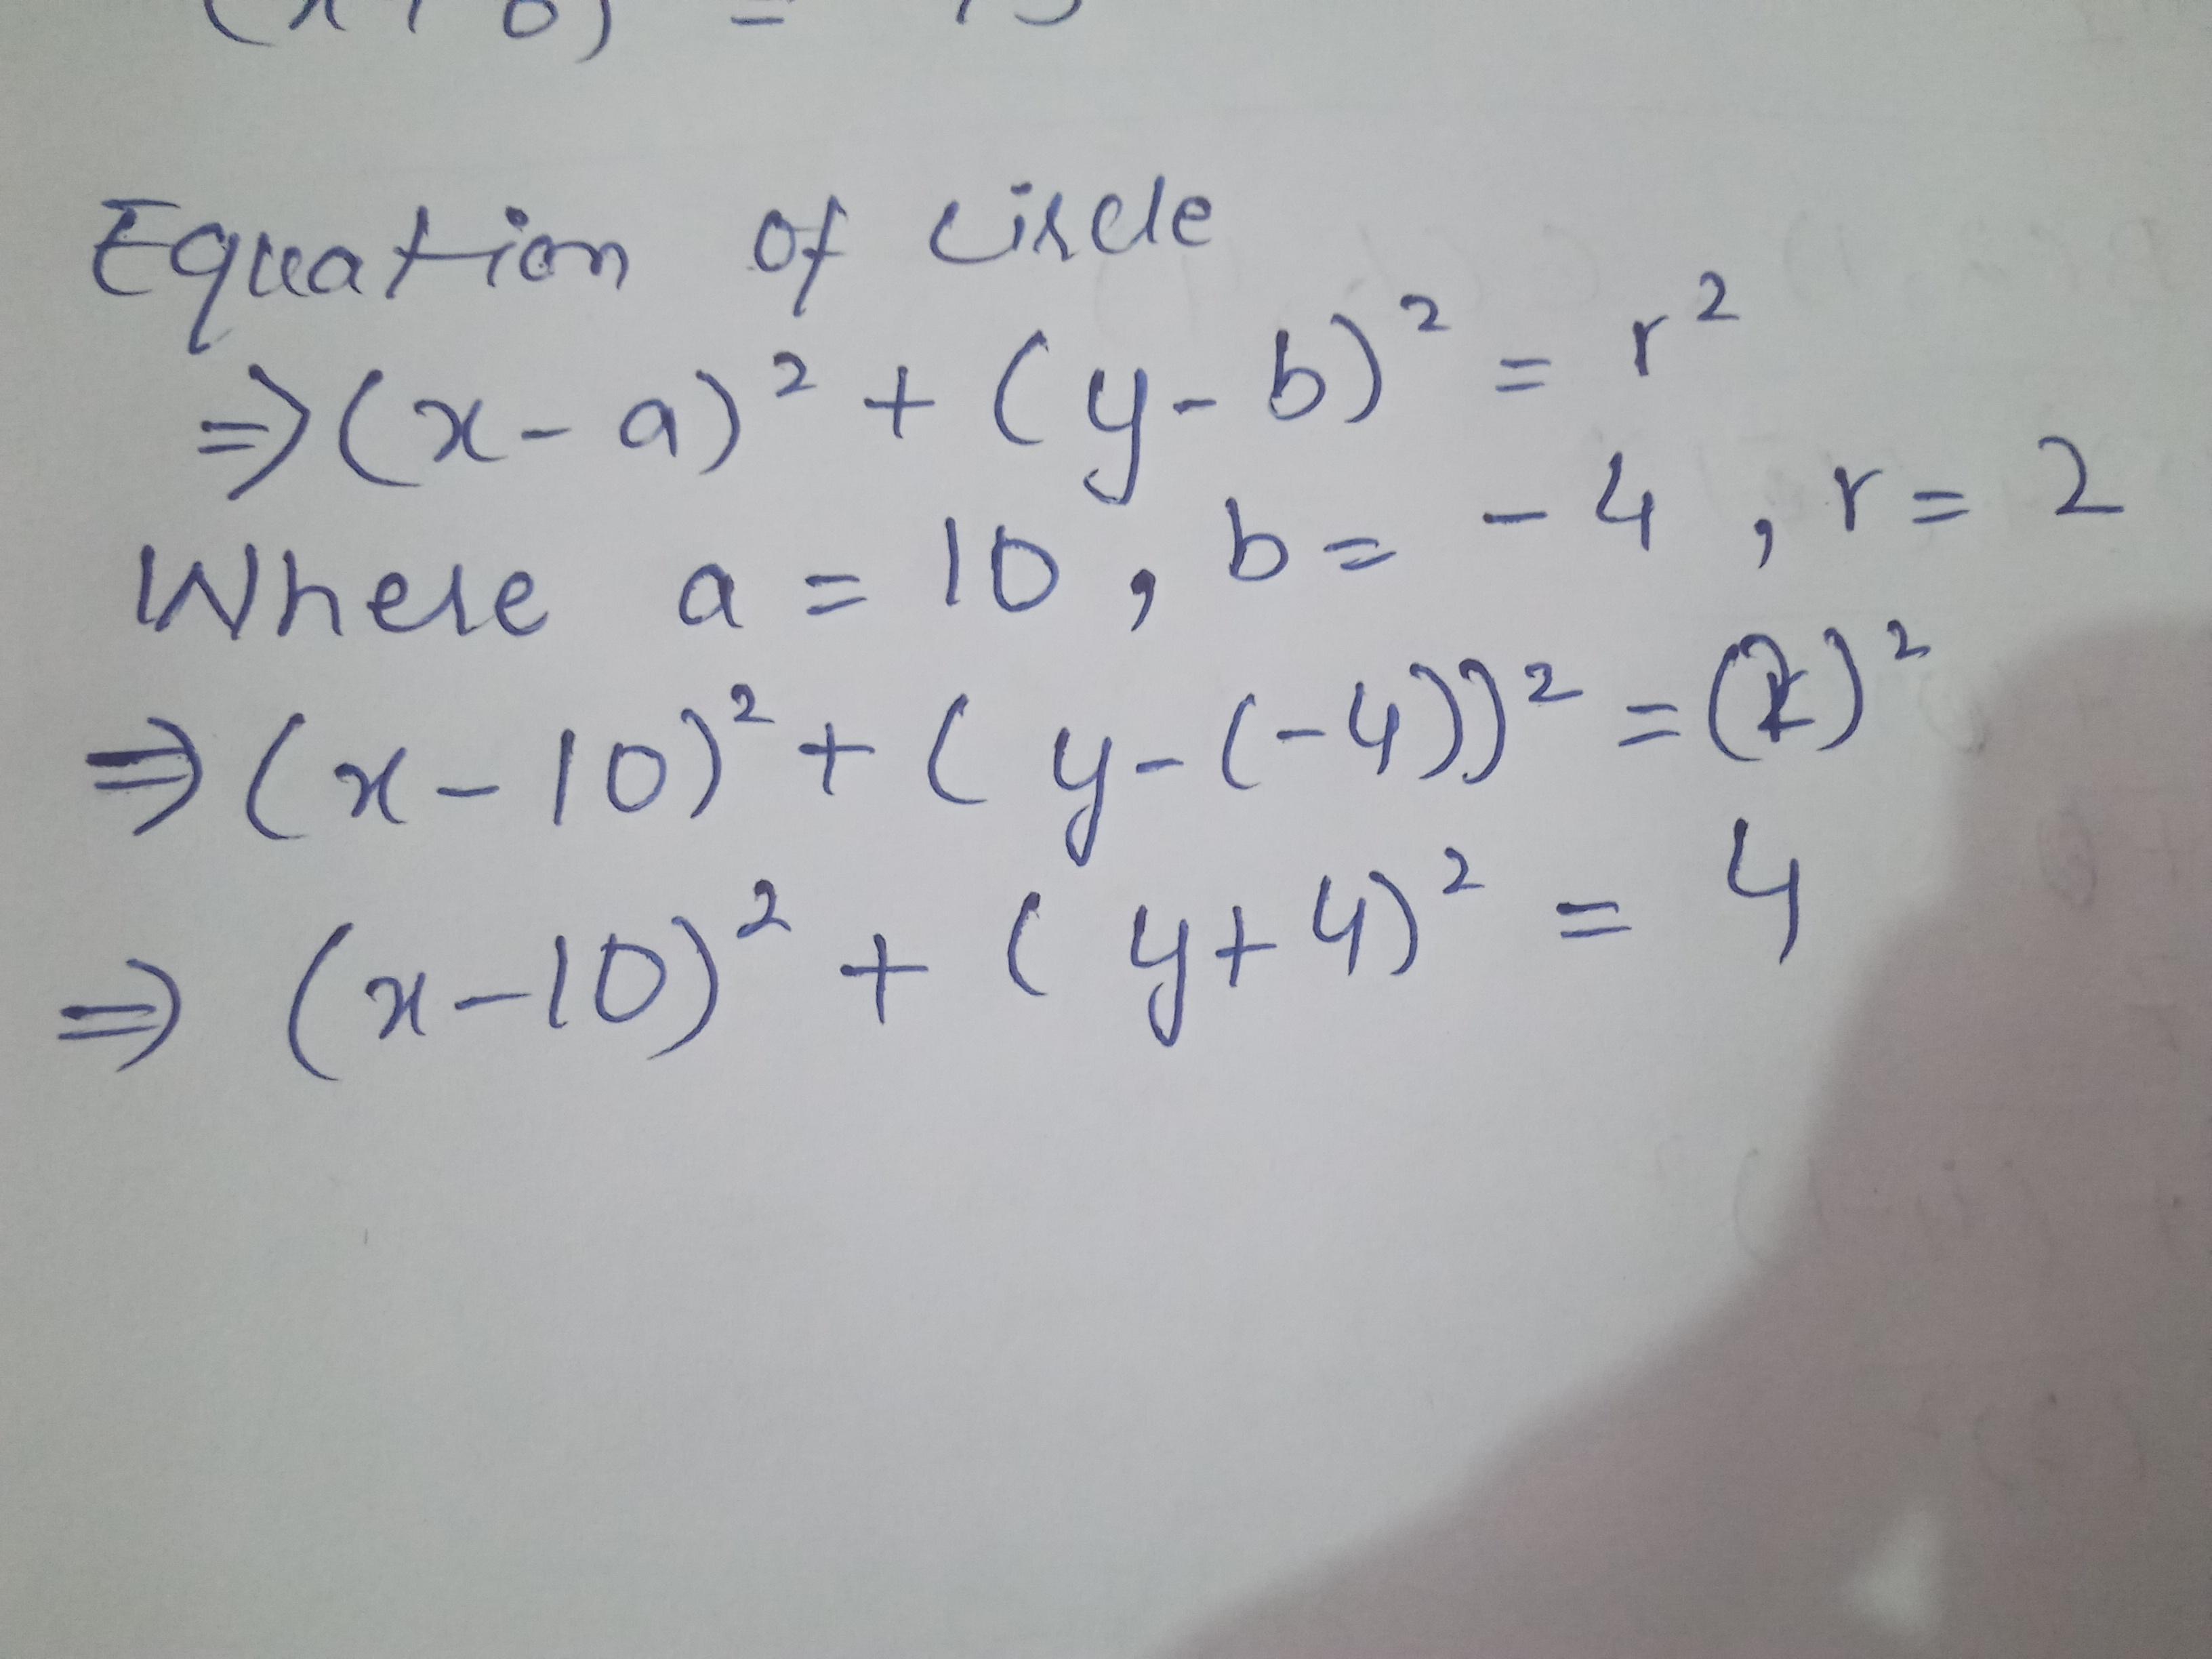 Equation of circle
⇒(x-a)² + (y-b)² = r²
Where a = 10, b = -4, r = 2
⇒(x-10)² + (y-(-4))² = (2)²
⇒ (x-10)² + (y+4)² = 4